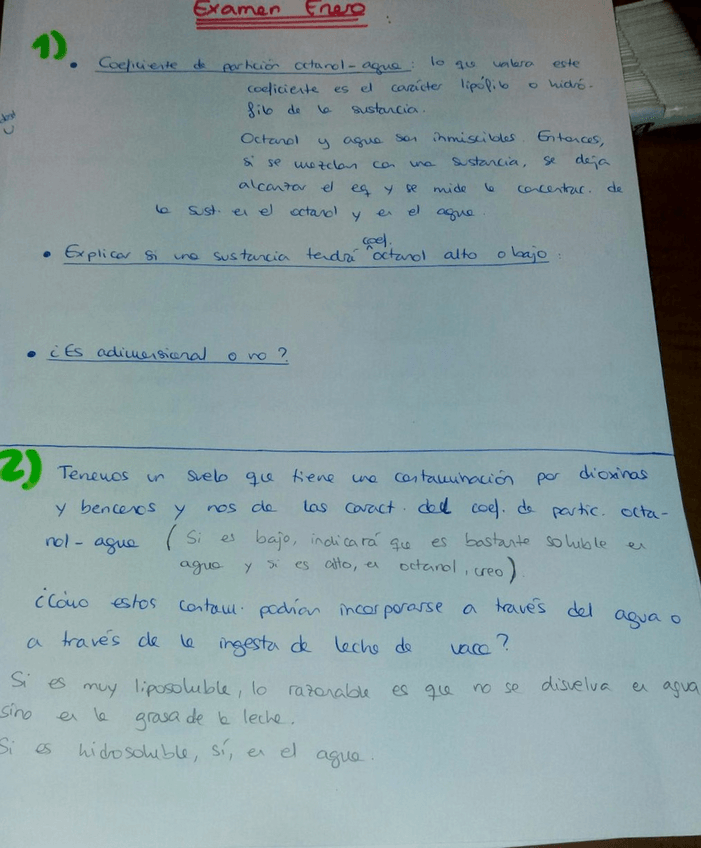 Examen Enero
1)
• Coeficiente de partición octanol-agua: lo que valora este
coeficiente es el carácter lipófilo o hidró-
filo de la sustancia.
Octanol y agua son inmiscibles. Entonces,
si se mezclan con una sustancia, se deja
alcanzar el eq y se mide la concentrac. de
la sust. en el octanol y en el agua.
• Explicar si una sustancia tendrá coef. octanol alto o bajo:
• ¿Es adimensional o no?
2) Tenemos un suelo que tiene una contaminación por dioxinas
y bencenos y nos da las caract. del coef. de partic. octa-
nol-agua (Si es bajo, indicará que es bastante soluble en
agua y si es alto, en octanol, creo)
¿Cómo estos contam. podrían incorporarse a través del agua o
a través de la ingesta de leche de vaca?
Si es muy liposoluble, lo razonable es que no se disuelva en agua
sino en la grasa de la leche.
Si es hidrosoluble, sí, en el agua.